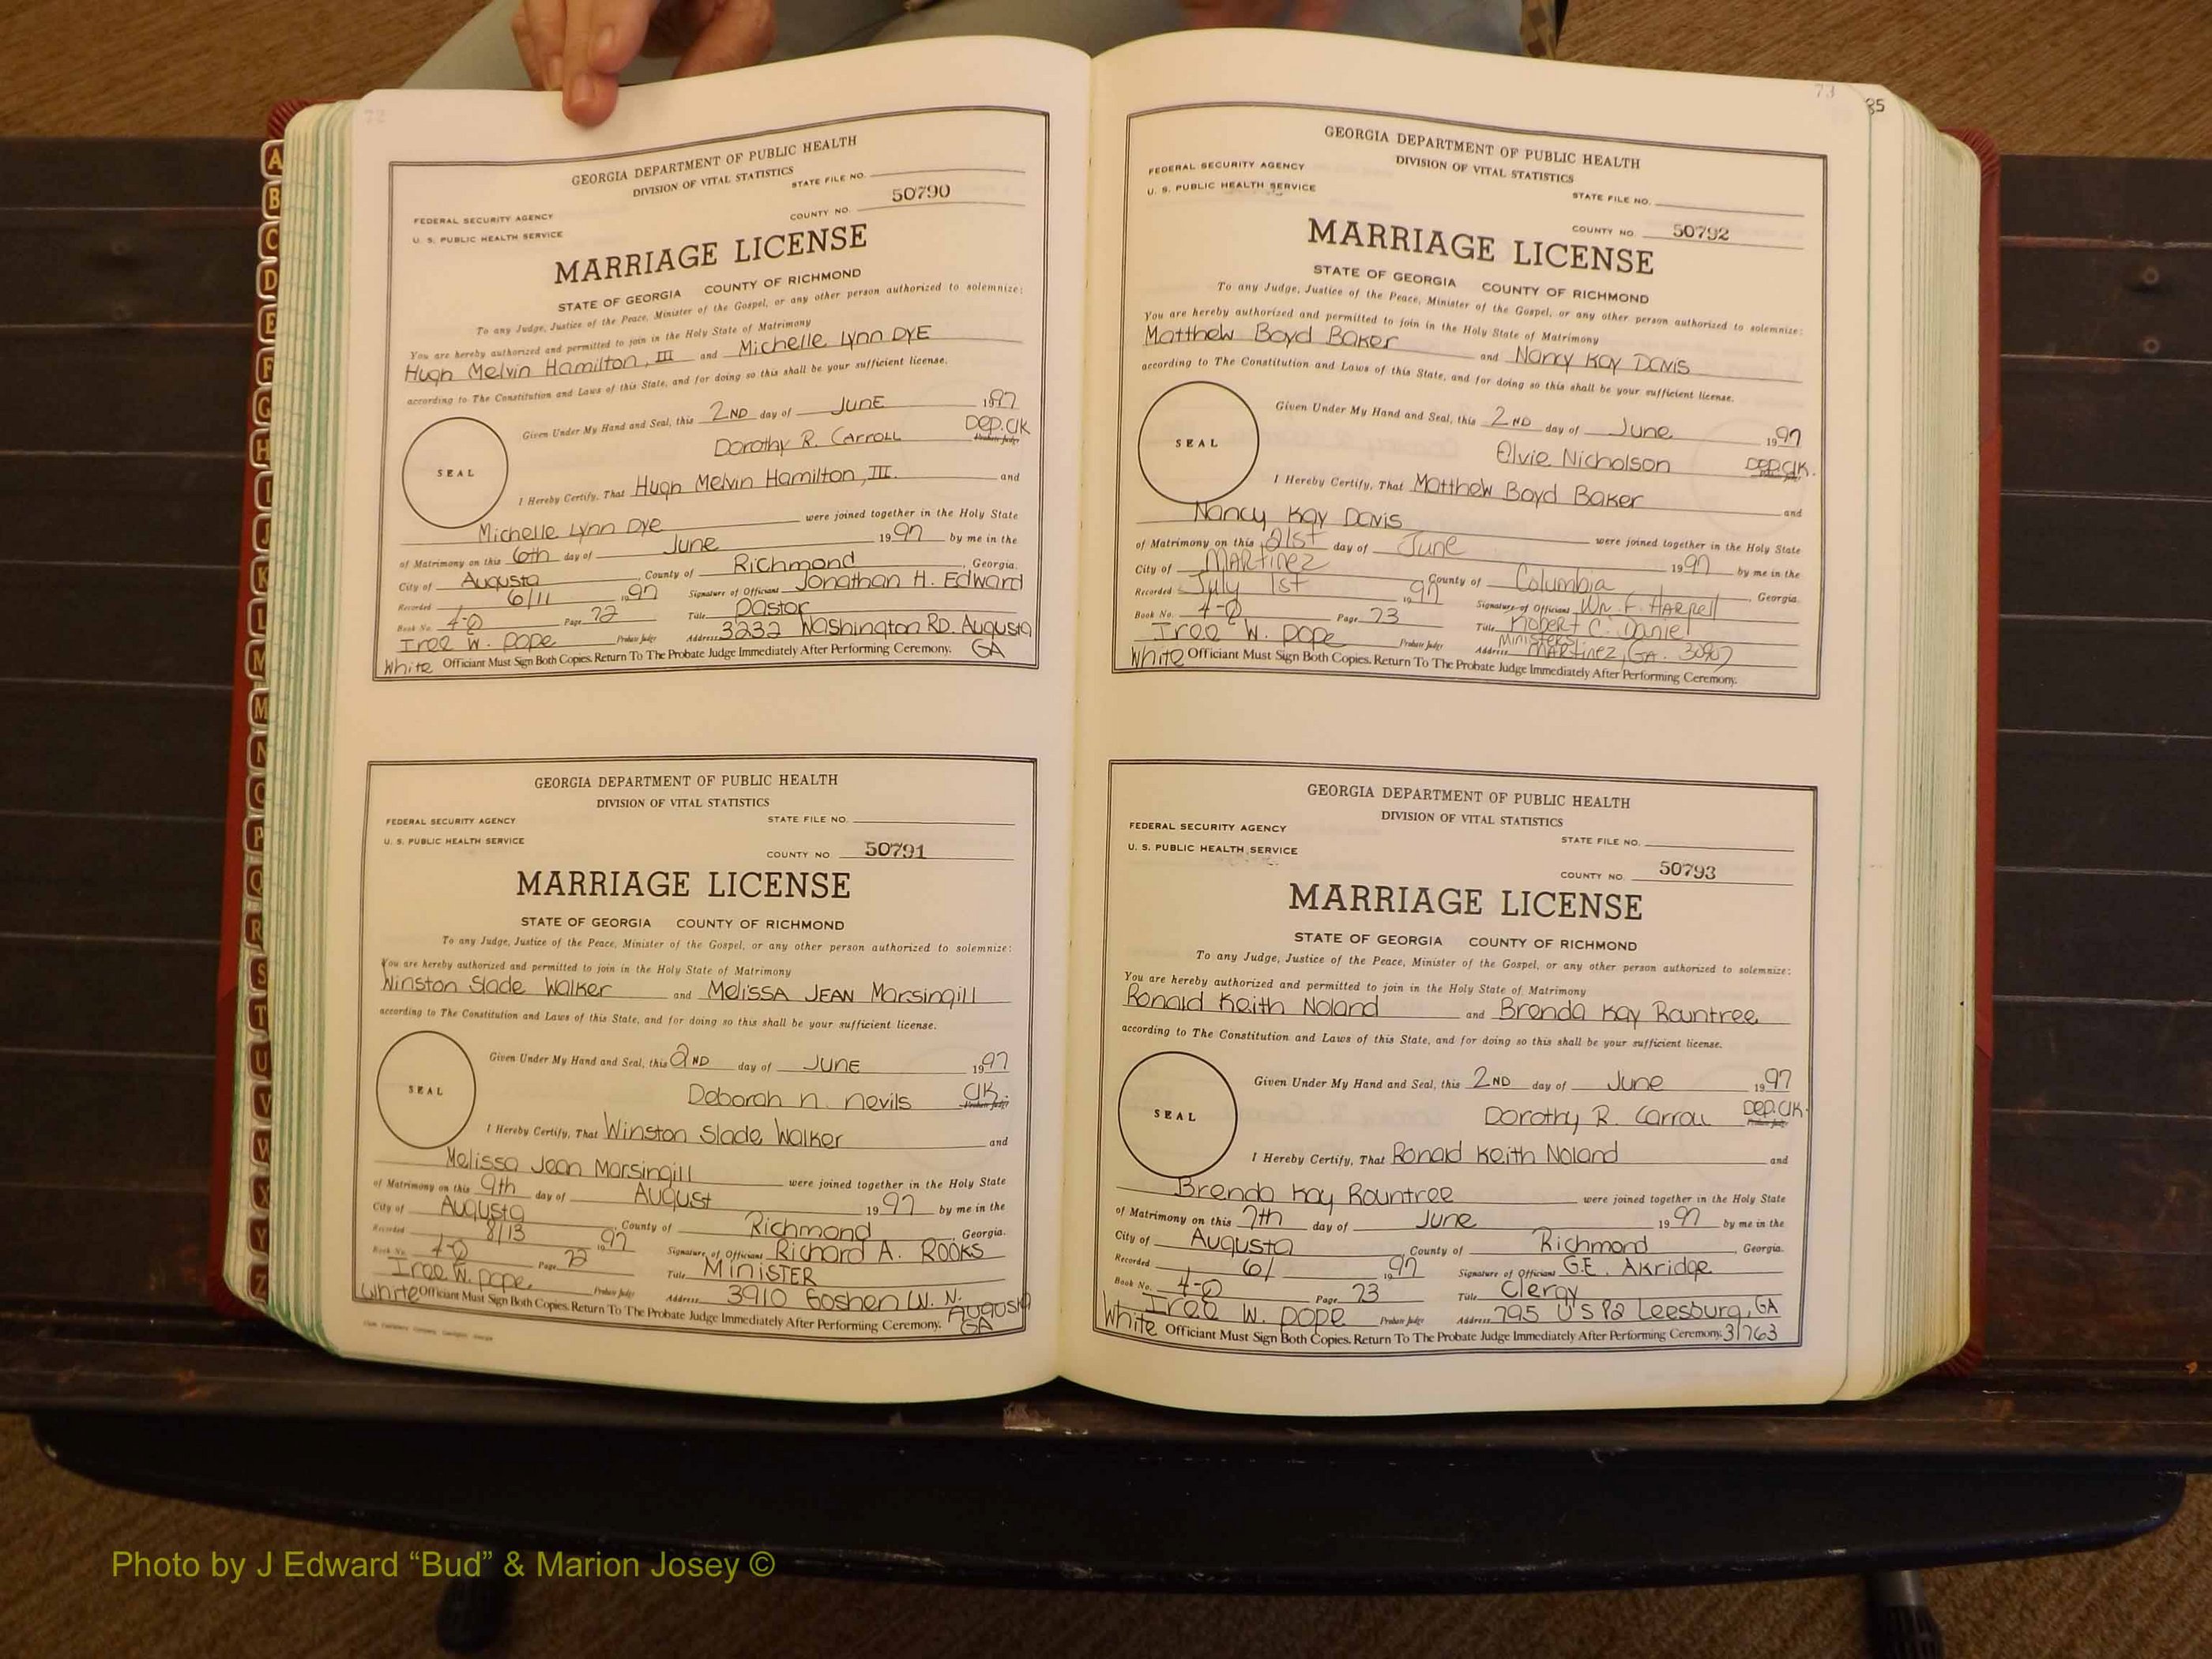 72
GEORGIA DEPARTMENT OF PUBLIC HEALTH
DIVISION OF VITAL STATISTICS
STATE FILE NO.
FEDERAL SECURITY AGENCY
COUNTY NO. 50790
U. S. PUBLIC HEALTH SERVICE
MARRIAGE LICENSE
STATE OF GEORGIA COUNTY OF RICHMOND
To any Judge, Justice of the Peace, Minister of the Gospel, or any other person authorized to solemnize:
You are hereby authorized and permitted to join in the Holy State of Matrimony
Hugh Melvin Hamilton, III and Michelle Lynn DYE
according to The Constitution and Laws of this State, and for doing so this shall be your sufficient license.
Given Under My Hand and Seal, this 2ND day of JUNE 1997
Dorothy R. CARROLL DEP.Clk Probate Judge
SEAL
I Hereby Certify, That Hugh Melvin Hamilton, III. and
Michelle Lynn Dye were joined together in the Holy State
of Matrimony on this 6th day of June 1997 by me in the
City of Augusta, County of Richmond, Georgia.
Recorded 6/11 1997 Signature of Officiant Jonathan H. Edward
Book No. 4-Q Page 72 Title Pastor
Iree W. Pope Probate Judge Address 3232 Washington RD. Augusta
White Officiant Must Sign Both Copies. Return To The Probate Judge Immediately After Performing Ceremony. GA
GEORGIA DEPARTMENT OF PUBLIC HEALTH
DIVISION OF VITAL STATISTICS
FEDERAL SECURITY AGENCY STATE FILE NO.
U. S. PUBLIC HEALTH SERVICE
COUNTY NO 50791
MARRIAGE LICENSE
STATE OF GEORGIA COUNTY OF RICHMOND
To any Judge, Justice of the Peace, Minister of the Gospel, or any other person authorized to solemnize:
You are hereby authorized and permitted to join in the Holy State of Matrimony
Winston Slade Walker and MeliSSA JEAN Marsingill
according to The Constitution and Laws of this State, and for doing so this shall be your sufficient license.
Given Under My Hand and Seal, this 2ND day of JUNE 1997
Deborah n. nevils Clk. Probate Judge
SEAL
I Hereby Certify, That Winston Slade Walker and
Melissa Jean Marsingill were joined together in the Holy State
of Matrimony on this 9th day of August 1997 by me in the
City of Augusta, County of Richmond, Georgia.
Recorded 8/13 1997 Signature of Officiant Richard A. ROOKS
Book No. 4-Q Page 72 Title MiniSTER
Iree W. Pope Probate Judge Address 3910 Goshen W. N. Augusta
White Officiant Must Sign Both Copies. Return To The Probate Judge Immediately After Performing Ceremony. GA
73
85
GEORGIA DEPARTMENT OF PUBLIC HEALTH
DIVISION OF VITAL STATISTICS
FEDERAL SECURITY AGENCY
U. S. PUBLIC HEALTH SERVICE
STATE FILE NO.
COUNTY NO. 50792
MARRIAGE LICENSE
STATE OF GEORGIA COUNTY OF RICHMOND
To any Judge, Justice of the Peace, Minister of the Gospel, or any other person authorized to solemnize:
You are hereby authorized and permitted to join in the Holy State of Matrimony
Matthew Boyd Baker and Nancy Kay Davis
according to The Constitution and Laws of this State, and for doing so this shall be your sufficient license.
Given Under My Hand and Seal, this 2ND day of June 1997
Elvie Nicholson DEP.Clk.
SEAL
I Hereby Certify, That Matthew Boyd Baker and
Nancy Kay Davis were joined together in the Holy State
of Matrimony on this 21st day of June 1997 by me in the
City of MARTinez County of Columbia, Georgia.
Recorded July 1st 1997 Signature of Officiant Wm. F. HARRell
Book No. 4-Q Page 73 Title Robert C. Daniel
Ministers
Iree W. Pope Probate Judge Address MARTinez, GA. 30907
White Officiant Must Sign Both Copies. Return To The Probate Judge Immediately After Performing Ceremony.
GEORGIA DEPARTMENT OF PUBLIC HEALTH
DIVISION OF VITAL STATISTICS
FEDERAL SECURITY AGENCY STATE FILE NO.
U. S. PUBLIC HEALTH SERVICE
COUNTY NO. 50793
MARRIAGE LICENSE
STATE OF GEORGIA COUNTY OF RICHMOND
To any Judge, Justice of the Peace, Minister of the Gospel, or any other person authorized to solemnize:
You are hereby authorized and permitted to join in the Holy State of Matrimony
Ronald Keith Noland and Brenda Kay Rountree
according to The Constitution and Laws of this State, and for doing so this shall be your sufficient license.
Given Under My Hand and Seal, this 2ND day of June 1997
Dorothy R. Carroll DEP.Clk. Probate Judge
SEAL
I Hereby Certify, That Ronald Keith Noland and
Brenda Kay Rountree were joined together in the Holy State
of Matrimony on this 7th day of June 1997 by me in the
City of Augusta, County of Richmond, Georgia.
Recorded 6/ 1997 Signature of Officiant G.E. Akridge
Book No. 4-Q Page 73 Title Clergy
Iree W. Pope Probate Judge Address 795 U S Leesburg, GA
White Officiant Must Sign Both Copies. Return To The Probate Judge Immediately After Performing Ceremony. 31763
A
B
C
D
E
F
G
H
I
J
K
L
M
M
N
O
P
Q
R
S
T
U
V
W
X
Y
Z
Photo by J Edward “Bud” & Marion Josey ©